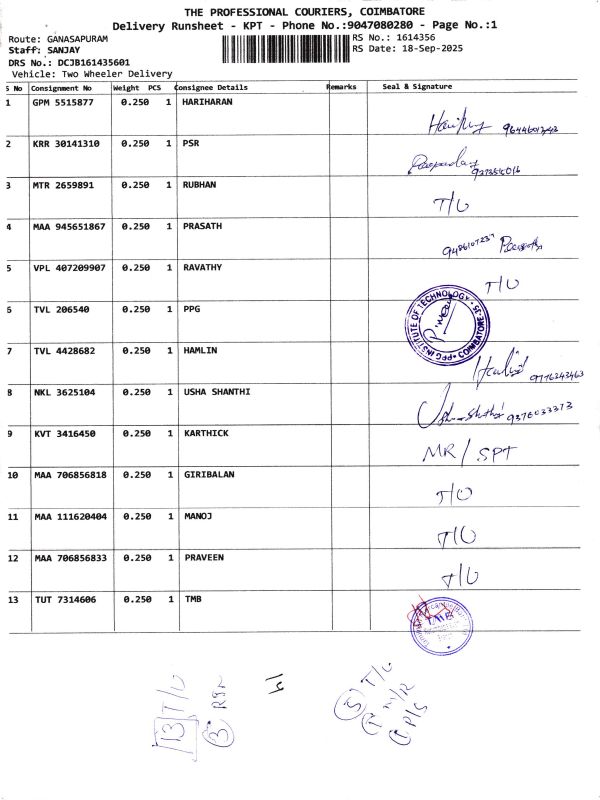 THE PROFESSIONAL COURIERS, COIMBATORE
Delivery Runsheet - KPT - Phone No.:9047080280 - Page No.:1
Route: GANASAPURAM
RS No.: 1614356
Staff: SANJAY
RS Date: 18-Sep-2025
DRS No.: DCJB161435601
Vehicle: Two Wheeler Delivery
S No Consignment No Weight PCS Consignee Details Remarks Seal & Signature
1 GPM 5515877 0.250 1 HARIHARAN
2 KRR 30141310 0.250 1 PSR
3 MTR 2659891 0.250 1 RUBHAN T/U
4 MAA 945651867 0.250 1 PRASATH
5 VPL 407209907 0.250 1 RAVATHY T/U
6 TVL 206540 0.250 1 PPG PPG INSTITUTE OF TECHNOLOGY COIMBATORE-35
7 TVL 4428682 0.250 1 HAMLIN
8 NKL 3625104 0.250 1 USHA SHANTHI 9378033373
9 KVT 3416450 0.250 1 KARTHICK MR/SPT
10 MAA 706856818 0.250 1 GIRIBALAN T/U
11 MAA 111620404 0.250 1 MANOJ T/U
12 MAA 706856833 0.250 1 PRAVEEN T/U
13 TUT 7314606 0.250 1 TMB TMB
13 T/U
3
5 T/U
1 M/R
1 P/S